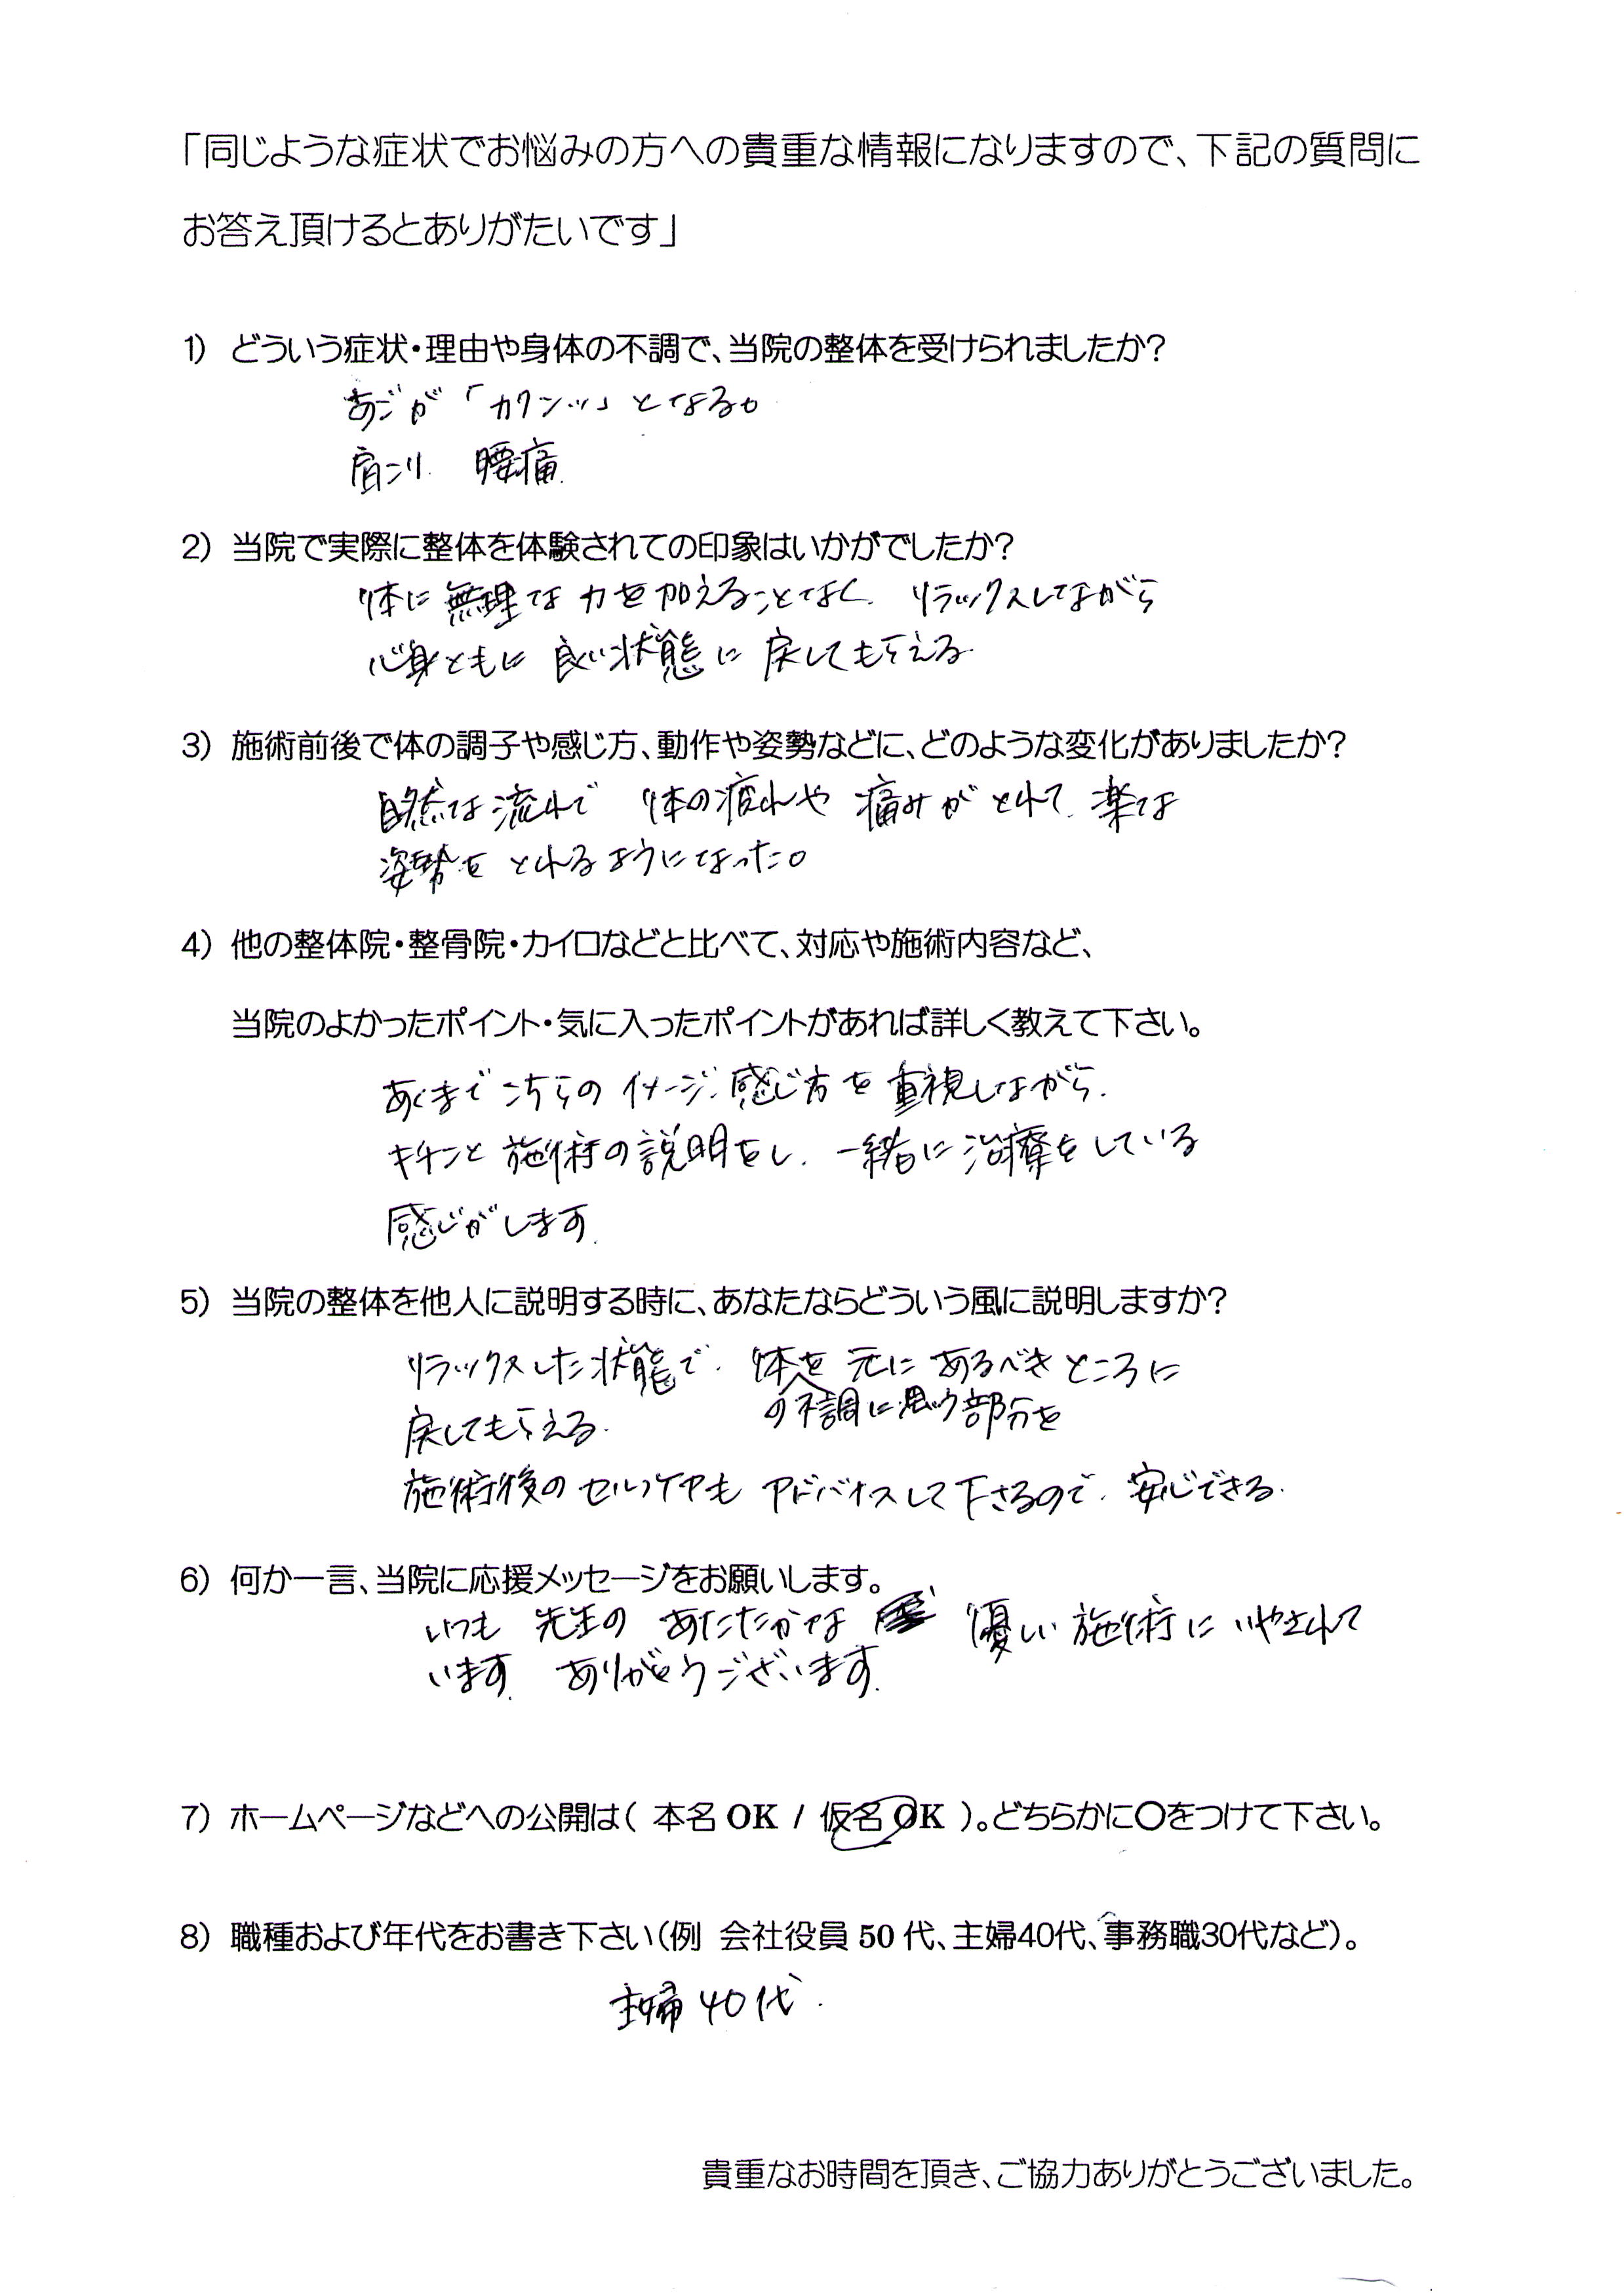 「同じような症状でお悩みの方への貴重な情報になりますので、下記の質問に
お答え頂けるとありがたいです」
1) どういう症状・理由や身体の不調で、当院の整体を受けられましたか?
あごが「カクンッ」となる。
肩こり. 腰痛.
2) 当院で実際に整体を体験されての印象はいかがでしたか?
体に無理な力を加えることなく、リラックスしながら
心身ともに良い状態に戻してもらえる.
3) 施術前後で体の調子や感じ方、動作や姿勢などに、どのような変化がありましたか?
自然な流れで 体の疲れや痛みがとれて、楽な
姿勢をとれるようになった。
4) 他の整体院・整骨院・カイロなどと比べて、対応や施術内容など、
当院のよかったポイント・気に入ったポイントがあれば詳しく教えて下さい。
あくまでこちらのイメージ、感じ方を重視しながら、
キチンと施術の説明をし、一緒に治療をしている
感じがします.
5) 当院の整体を他人に説明する時に、あなたならどういう風に説明しますか?
リラックスした状態で、体を元にあるべきところに
の不調に思う部分を
戻してもらえる.
施術後のセルフケアもアドバイスして下さるので、安心できる.
6) 何か一言、当院に応援メッセージをお願いします。
いつも先生のあたたかな 優しい施術にいやされて
います. ありがとうございます.
7) ホームページなどへの公開は( 本名 OK / 仮名 OK )。どちらかに〇をつけて下さい。
8) 職種および年代をお書き下さい(例 会社役員 50 代、主婦40代、事務職30代など)。
主婦 40代.
貴重なお時間を頂き、ご協力ありがとうございました。